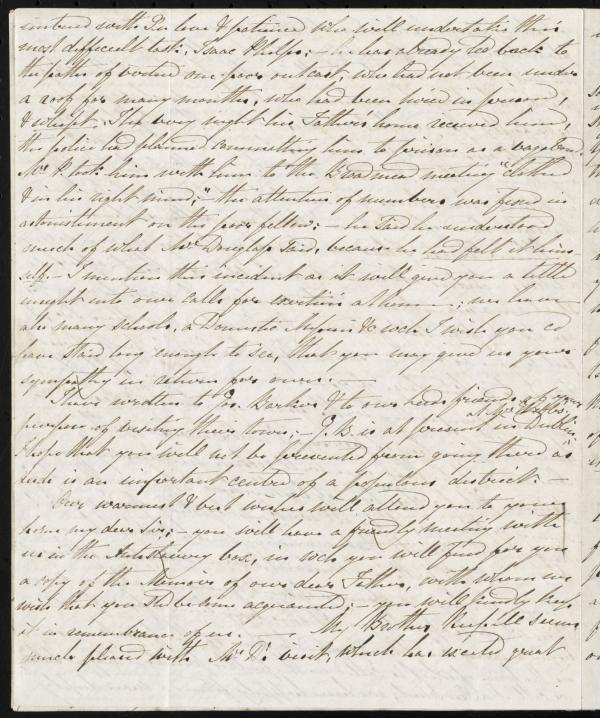 imbued with Xn love & patience who will undertake this
most difficult task, Isaac Phelps; – he has already led back to
the paths of one poor outcast, who had not been under
a roof for many months, who had been twice in prison,
& whipt. The very night his Father's home received him,
the police had planned committing him to prison as a vagabond.
Mr P. took him with him to the Broadmead meeting "clothed
& in his right mind;" the attention of numbers was fixed in
astonishment on the poor fellow; – he said he understood
much of what Mr Douglass said, because he had felt it him-
self. – I mention this incident as it will give you a little
insight into our calls for exertion at home; we have
also many schools, a Domestic Mission &c wch I wish you cd
have staid long enough to see, that you may give us your
sympathy in return for ours. –
I have written to Jos. Barker & to our Leeds friends of your
purpose of visiting their town; – J.B. is at present in Dublin
at Mr
I hope that you will not be prevented from going there as
Leeds is an important centre of a populous district: –
Our warmest & best wishes will attend you to your
home my dear Sir; – you will have a friendly meeting with
us in the Antislavery box, in wch you will find for you
a copy of the Memoir of our dear Father, with whom we
wish that you shd become acquainted; – you will kindly keep
it in remembrance of us. – My Brother Russell seems
much pleased with Mr D's visit, which has excited great